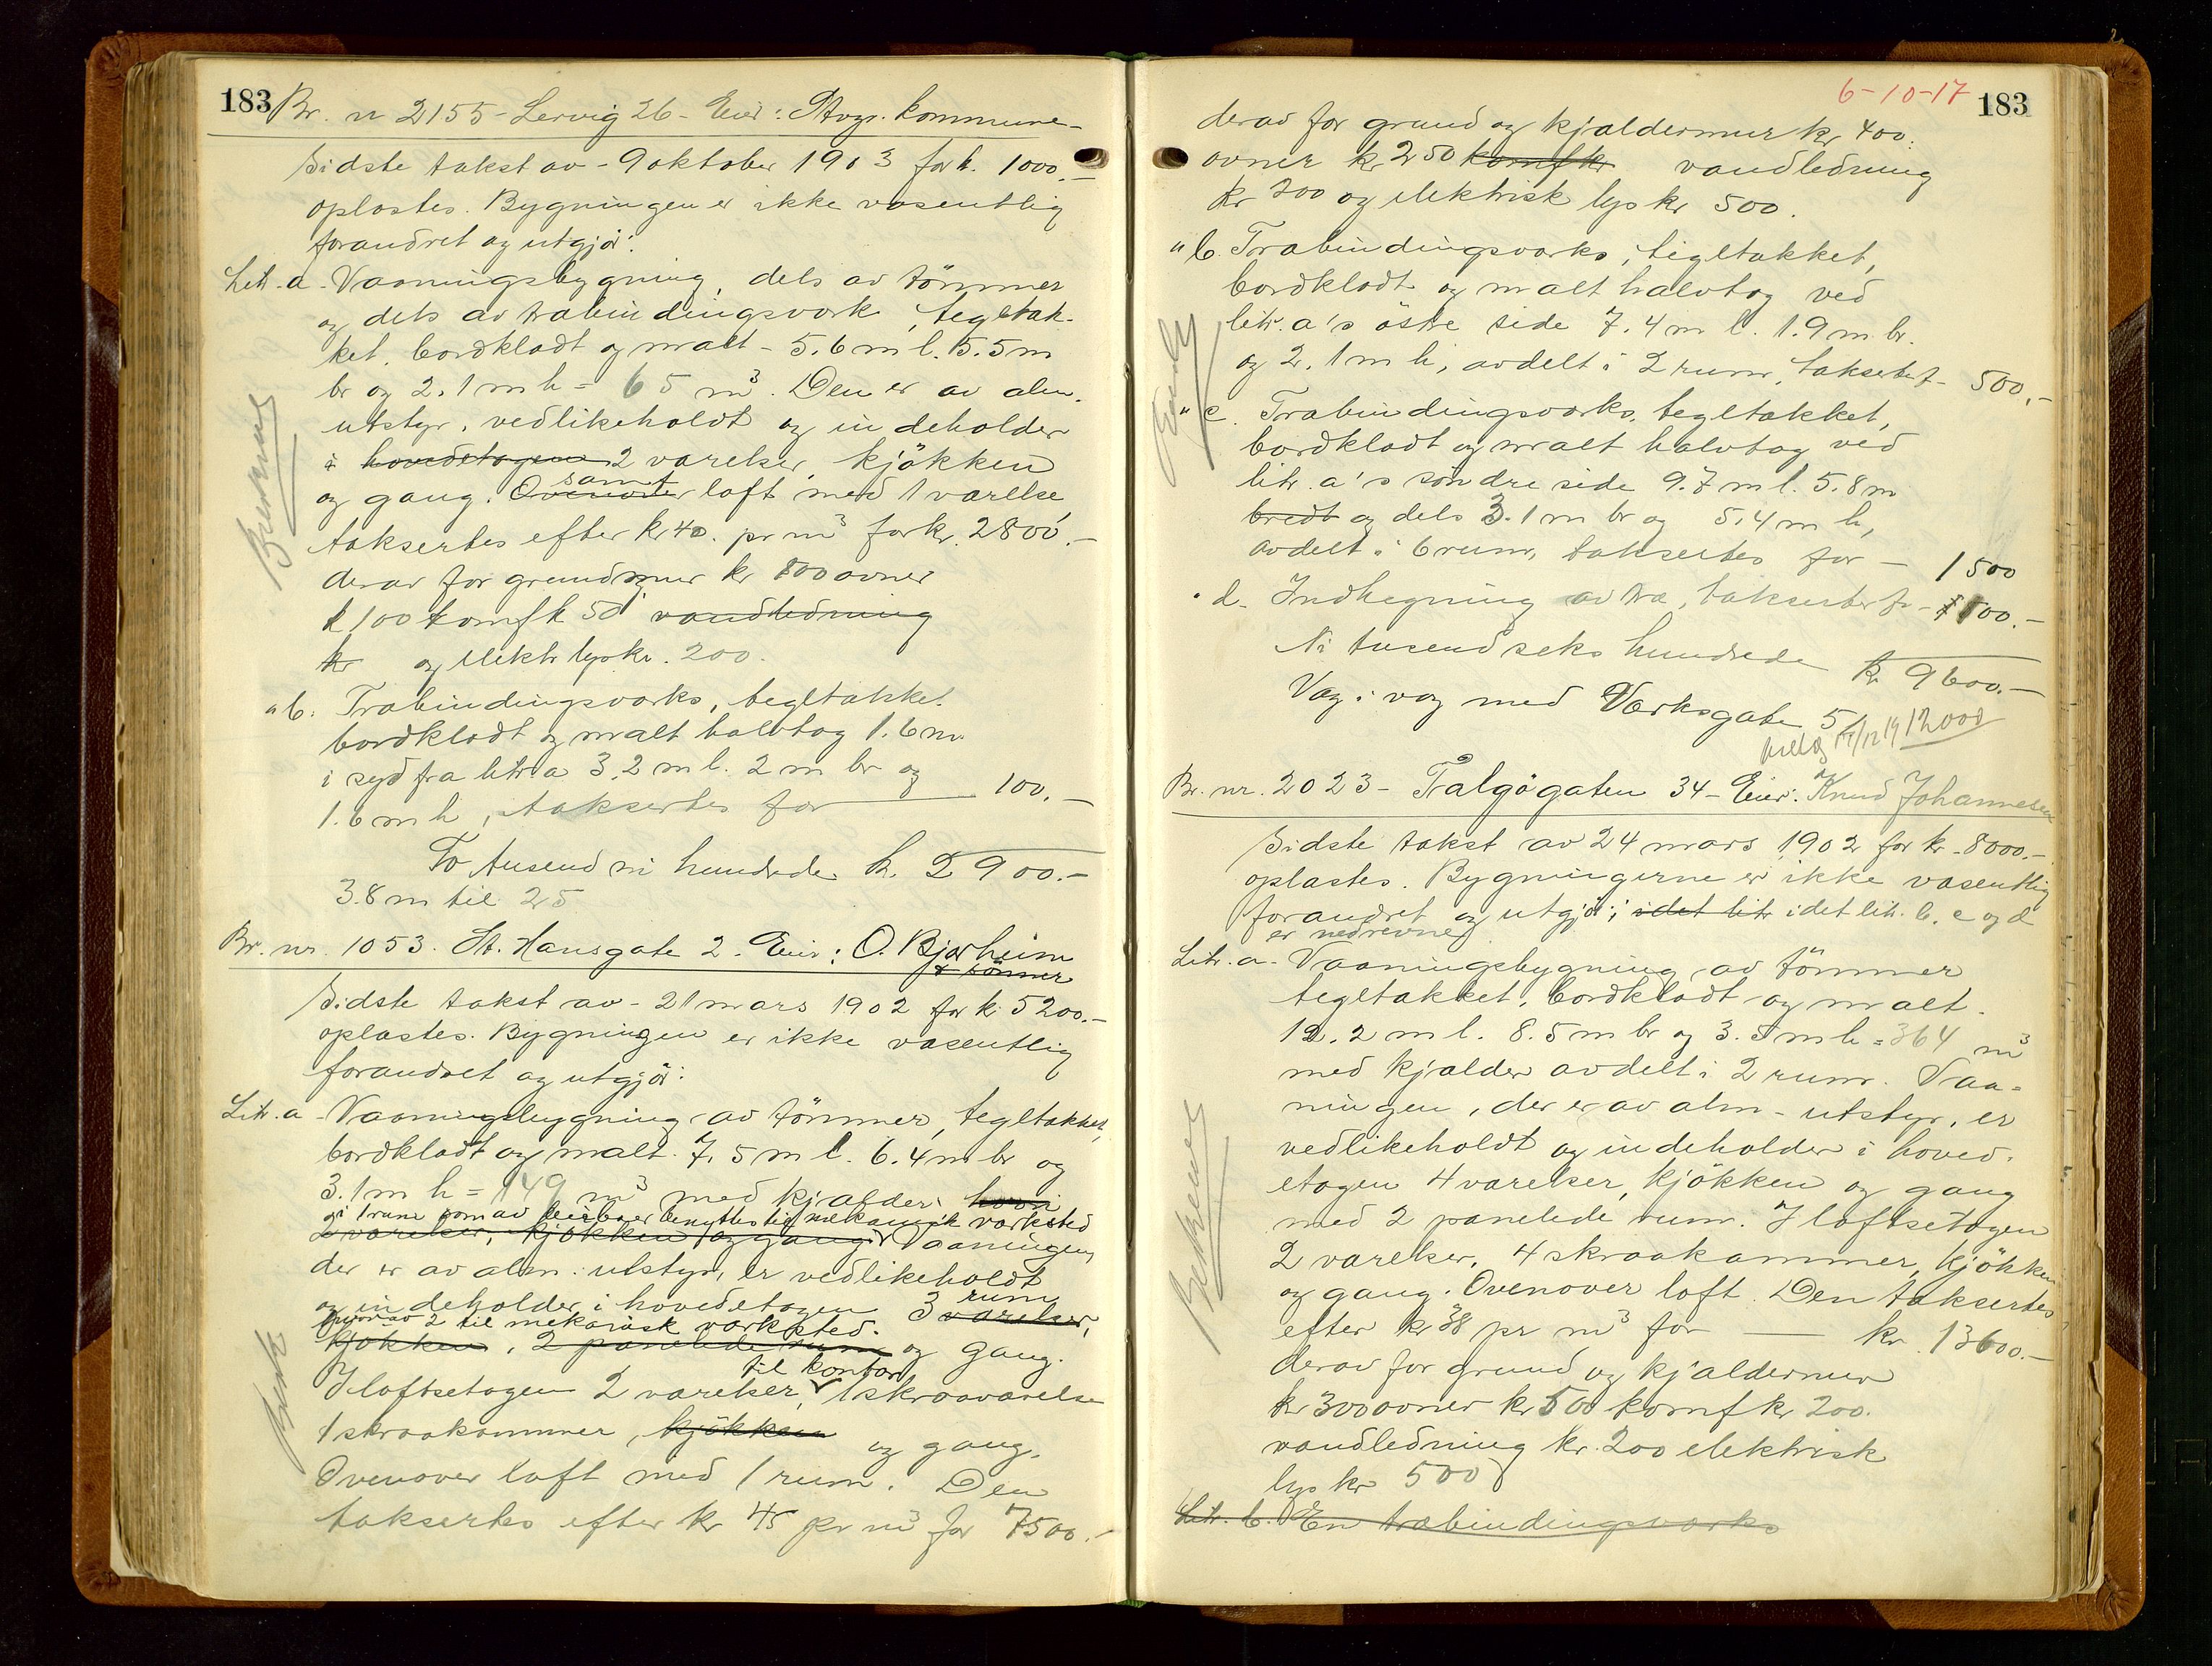 183 Br. nr 2155 - Lervig 26 - Eier: Stvgr. kommune -
Sidste takst av - 9 oktober 1903 for kr. 1000.-
oplæstes. Bygningen er ikke væsentlig
forandret og utgjør:
Litr. a - Vaaningsbygning, dels av tømmer
og dels av træbindingsverk, tegltæk-
ket, bordklædt og malt - 5.6 m l. 5.5 m
br og 2.1 m h = 65 m³. Den er av alm.
utstyr, vedlikeholdt og indeholder
i hovedetagen 2 værelser, kjøkken
samt
og gang. Ovenover loft med 1 værelse,
taksertes efter kr 40. pr m³ for kr. 2800.-
derav for grundmur kr 100 ovner
k 100 komf k 50 vandledning
kr og elektr lys kr. 200.
" b. Træbindingsværks, tegltækket.
bordklædt og malt halvtag 1.6 m
i syd fra litr a 3.2 m l. 2 m br og
1.6 m h, taksertes for — 100.-
To tusend ni hundrede kr. 2900.-
3.8 m til 25
Br. nr. 1053. St. Hansgate 2. Eier: O. Bjørheim
& sønner
Sidste takst av - 21 mars 1902 for k. 5200.-
oplæstes. Bygningen er ikke væsentlig
forandret og utgjør:
Litr. a - Vaaningsbygning av tømmer, tegltækket,
bordklædt og malt. 7.5 m l. 6.4 m br og
3.1 m h = 149 m³ med kjælder, hvori
og 1 rum som av eieren benyttes til mekanisk værksted
2 værelser, kjøkken og gang. Vaaningen,
der er av alm. utstyr, er vedlikeholdt
rum
og indeholder i hovedetagen 3 værelser,
hvorav 2 til mekanisk værksted.
kjøkken, 2 panelede rum og gang.
til kontor
I loftsetagen 2 værelser, 1 skraaværelse
1 skraakammer, kjøkken og gang.
Ovenover loft med 1 rum. Den
taksertes efter kr 45 pr m³ for 7500.-
6-10-17 183
derav for grund og kjældermur kr 400.
ovner kr 250 komf kr vandledning
kr 200 og elektrisk lys kr 500.
" b. Træbindingsværks, tegltækket,
bordklædt og malt halvtag ved
litr. a's østre side 7.4 m l. 1.9 m br.
og 2.1 m h, avdelt i 2 rum, taksertes f - 500.-
" c. Træbindingsværks, tegltækket,
bordklædt og malt halvtag ved
litr. a's søndre side 9.7 m l. 5.8 m
bredt og dels 3.1 m br og 5.4 m h,
avdelt i 6 rum, taksertes for — 1500
" d. Indhegning av træ, taksertes for - 100.-
Ni tusend seks hundrede kr 9600.-
Væg i væg med Værksgate 5
12000
Br. nr. 2023 - Talgøgaten 34 - Eier: Knud Johannesen
Sidste takst av 24 mars 1902 for kr. 8000.-
oplæstes. Bygningerne er ikke væsentlig
forandret og utgjør; idet litr idet litr. b, c og d
er nedrevne
Litr. a - Vaaningsbygning av tømmer
tegltækket, bordklædt og malt.
12.2 m l. 8.5 m br og 3.5 m h = 364 m³
med kjælder avdelt i 2 rum. Vaa-
ningen, der er av alm. utstyr, er
vedlikeholdt og indeholder i hoved-
etagen 4 værelser, kjøkken og gang
med 2 panelede rum. I loftsetagen
2 værelser, 4 skraakammer, kjøkken
og gang. Ovenover loft. Den taksertes
efter kr 38 pr m³ for — kr. 13600.-
derav for grund og kjældermur
kr 300 ovner kr 500 komf kr 200.
vandledning kr. 200 elektrisk
lys kr 500
Litr. b. En træbindingsværks